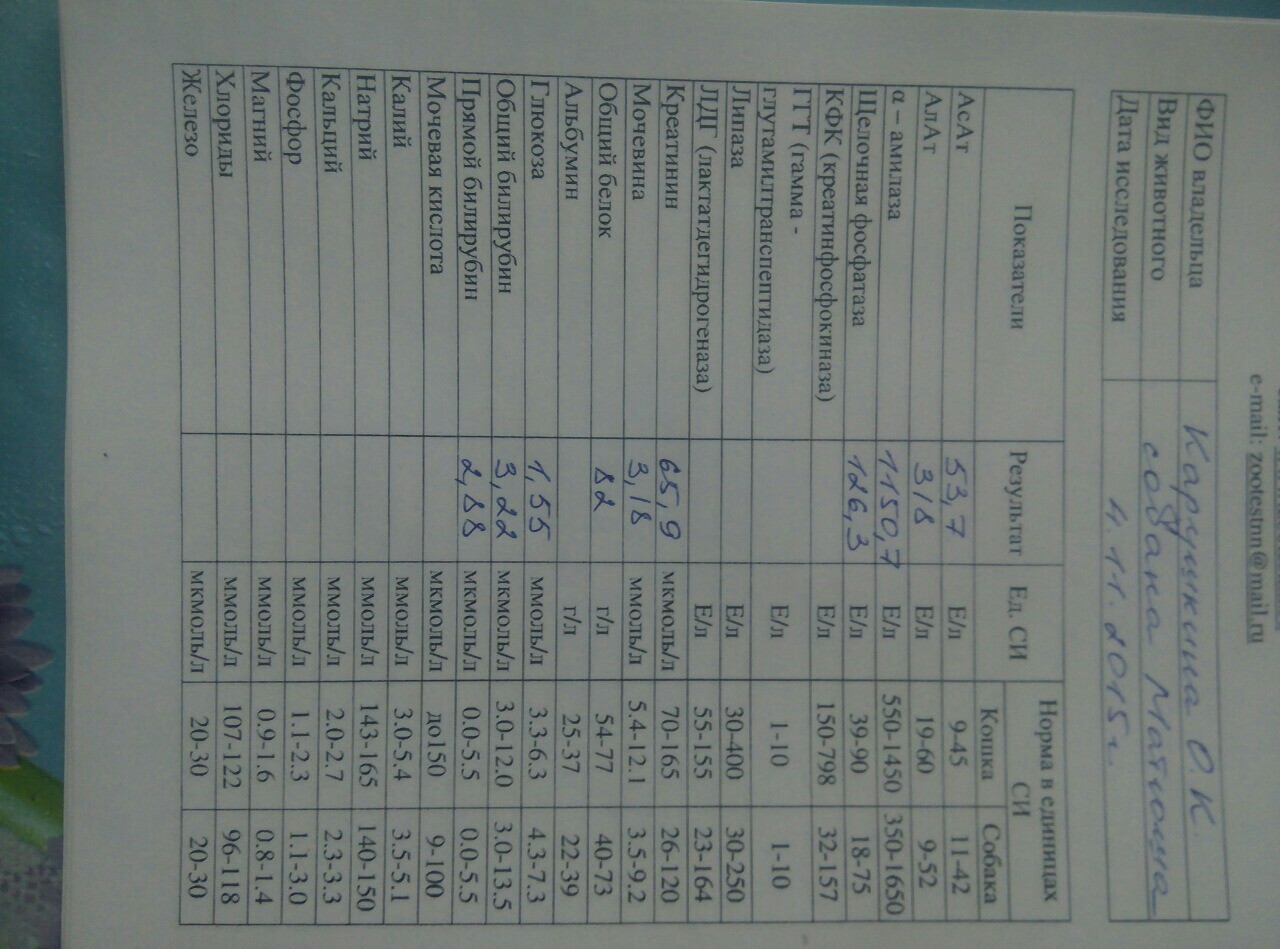 e-mail: zootestnn@mail.ru
ФИО владельца Карпушкина О.К.
Вид животного собака Матюша
Дата исследования 4.11.2015г.
Показатели Результат Ед. СИ Норма в единицах СИ
Кошка Собака
АсАт 53,7 Е/л 9-45 11-42
АлАт 318 Е/л 19-60 9-52
α – амилаза 1150,7 Е/л 550-1450 350-1650
Щелочная фосфатаза 126,3 Е/л 39-90 18-75
КФК (креатинфосфокиназа) Е/л 150-798 32-157
ГГТ (гамма -
глутамилтранспептидаза) Е/л 1-10 1-10
Липаза Е/л 30-400 30-250
ЛДГ (лактатдегидрогеназа) Е/л 55-155 23-164
Креатинин 65,9 мкмоль/л 70-165 26-120
Мочевина 3,18 ммоль/л 5.4-12.1 3.5-9.2
Общий белок 82 г/л 54-77 40-73
Альбумин г/л 25-37 22-39
Глюкоза 1,55 ммоль/л 3.3-6.3 4.3-7.3
Общий билирубин 3,22 мкмоль/л 3.0-12.0 3.0-13.5
Прямой билирубин 2,88 мкмоль/л 0.0-5.5 0.0-5.5
Мочевая кислота мкмоль/л до150 9-100
Калий ммоль/л 3.0-5.4 3.5-5.1
Натрий ммоль/л 143-165 140-150
Кальций ммоль/л 2.0-2.7 2.3-3.3
Фосфор ммоль/л 1.1-2.3 1.1-3.0
Магний ммоль/л 0.9-1.6 0.8-1.4
Хлориды ммоль/л 107-122 96-118
Железо мкмоль/л 20-30 20-30